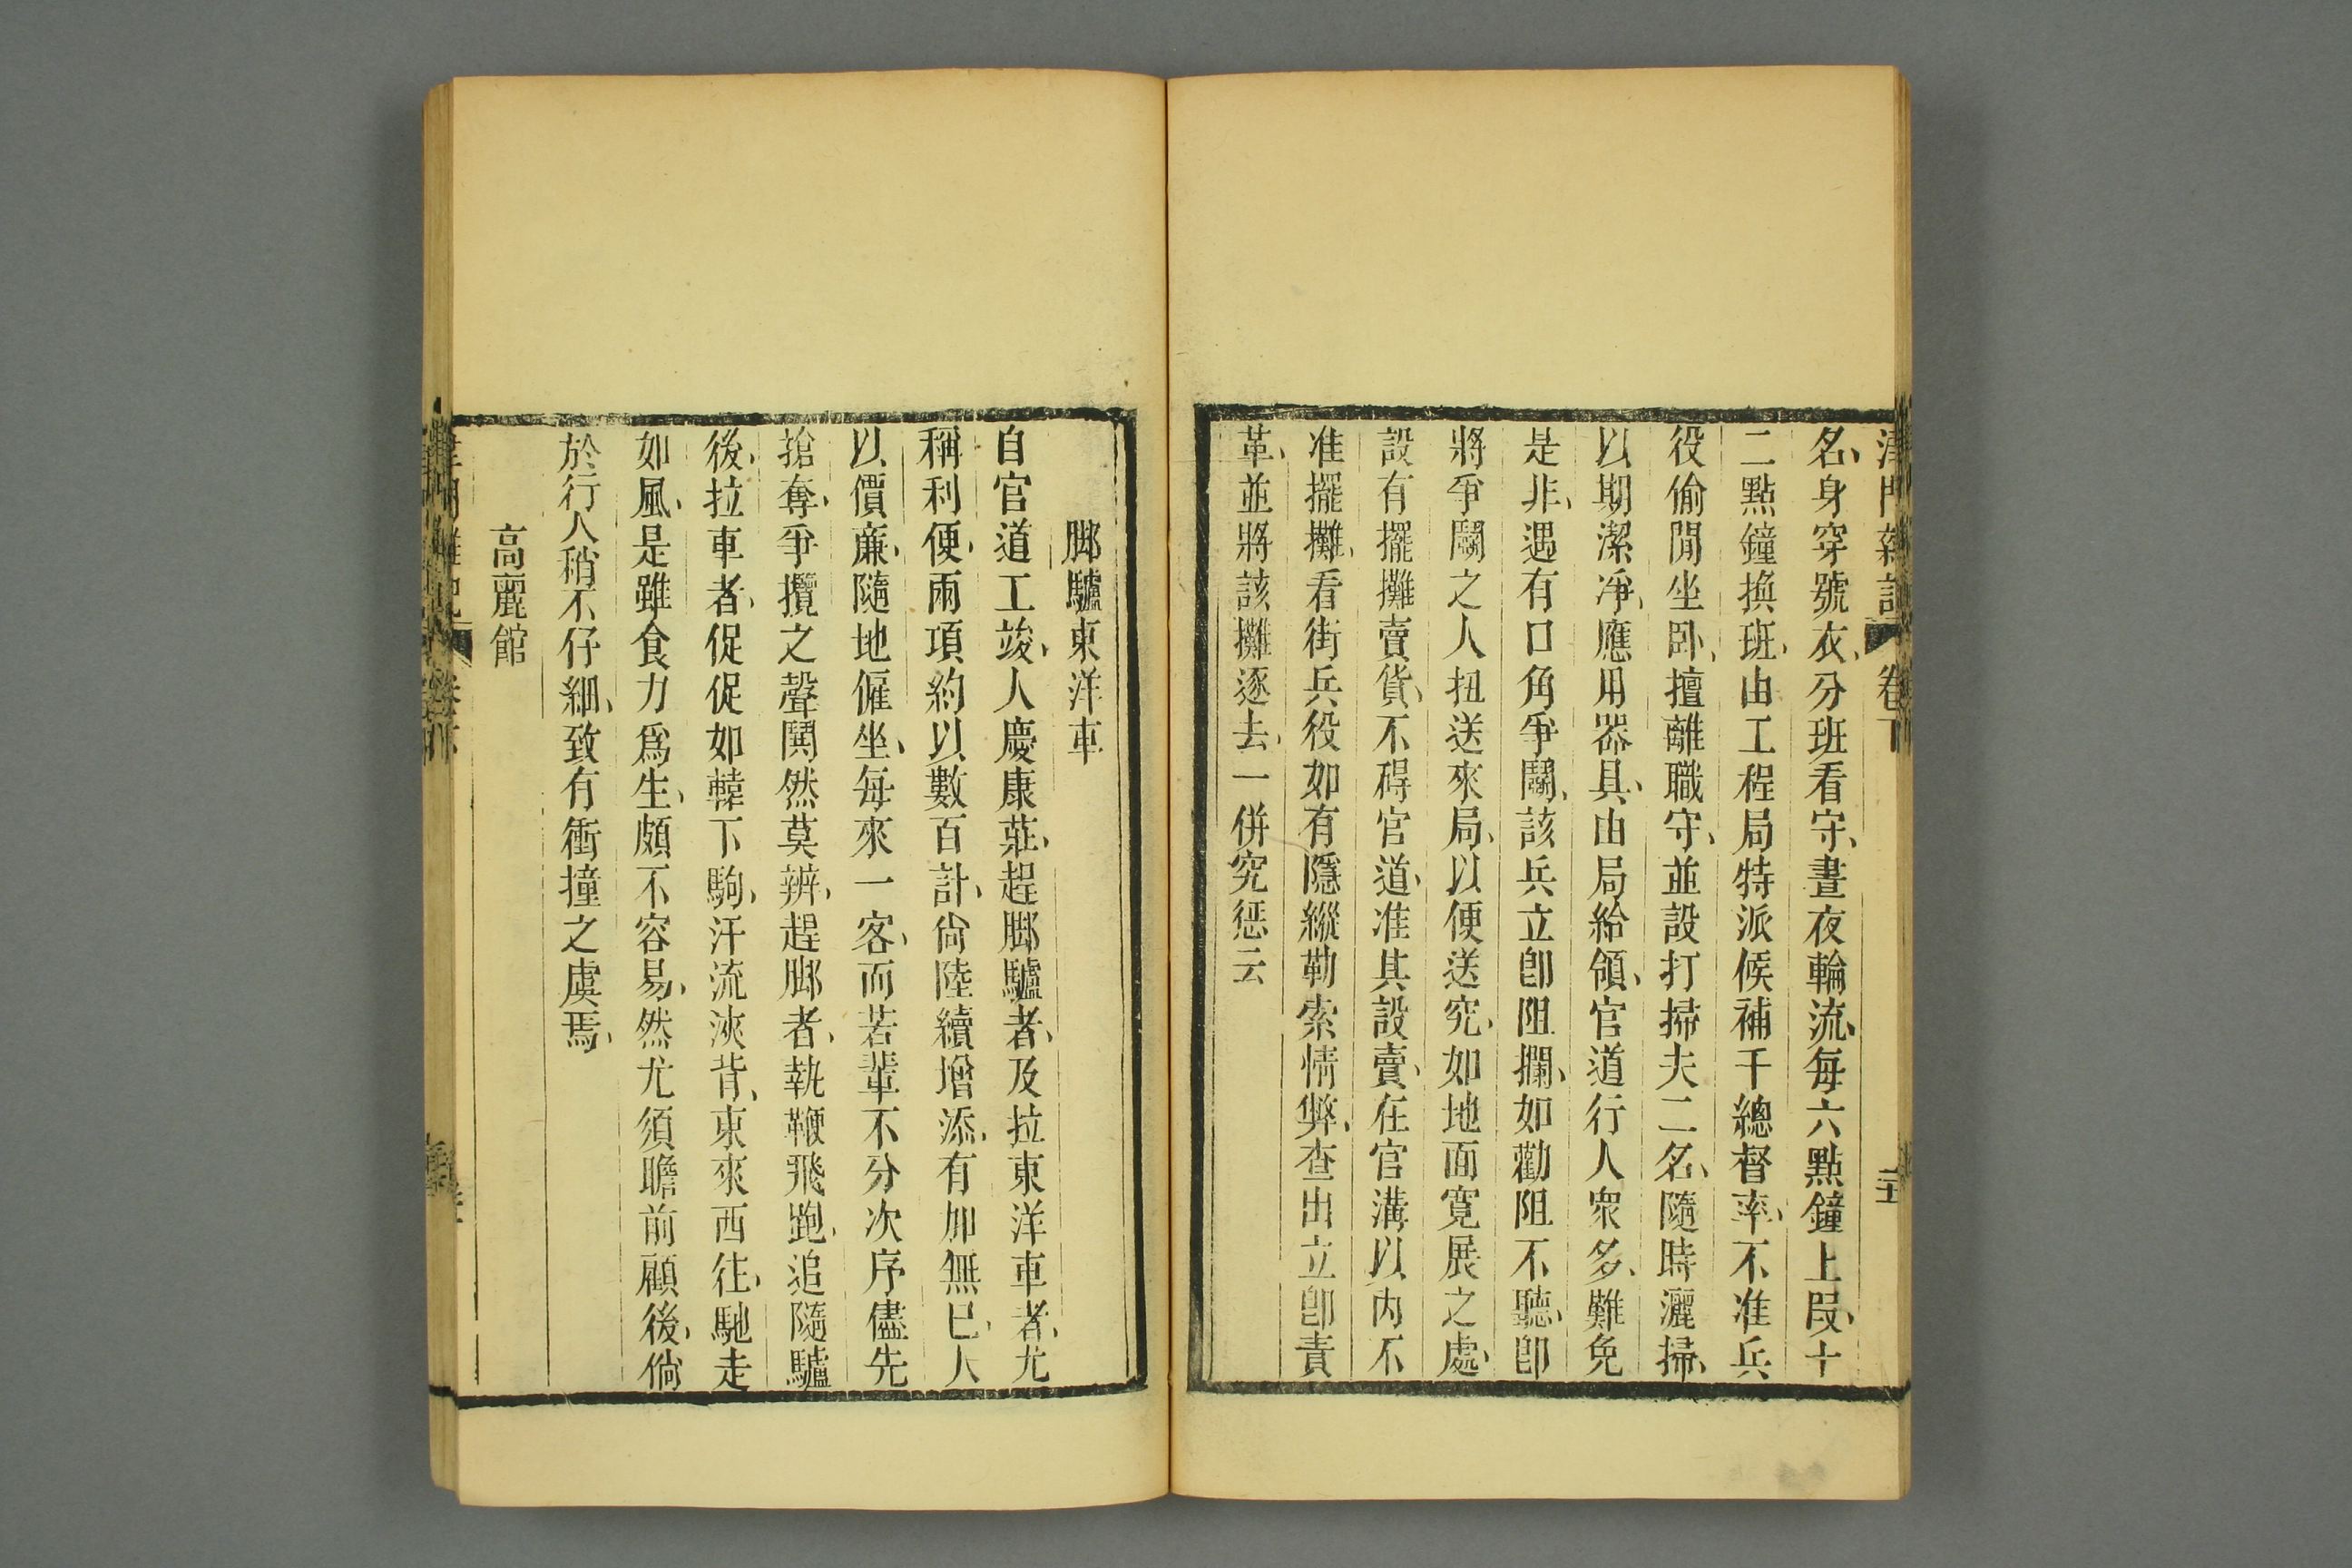 津門雜記 卷下
名、身穿號衣、分班看守、晝夜輪流、每六點鐘上段、十
二點鐘換班、由工程局特派候補千總督率、不准兵
役偷閒坐卧、擅離職守、並設打掃夫二名、隨時灑掃、
以期潔凈、應用器具、由局給領、官道行人衆多、難免
是非、遇有口角爭鬭、該兵立卽阻攔、如勸阻不聽、卽
將爭鬭之人扭送來局、以便送究、如地面寬展之處、
設有擺攤賣貨、不碍官道、准其設賣、在官溝以內不
准擺攤、看街兵役如有隱縱勒索情弊、查出立卽責
革、並將該攤逐去、一併究惩云
脚驢東洋車
自官道工竣、人慶康莊、趕脚驢者、及拉東洋車者、尤
稱利便、兩項約以數百計、尙陸續增添、有加無已、人
以價廉、隨地僱坐、每來一客、而若輩不分次序儘先
搶奪、爭攬之聲鬨然莫辨、趕脚者、執鞭飛跑、追隨驢
後、拉車者、促促如轅下駒、汗流浹背、東來西往、馳走
如風、是雖食力爲生、頗不容易、然尤須瞻前顧後、倘
於行人稍不仔細、致有衝撞之虞焉、
高麗館